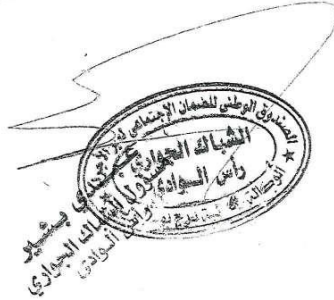 الصندوق الوطني للضمان الإجتماعي
الشباك الجواري
رأس الوادي
بشير
مسؤول الشباك الجواري
رأس الوادي